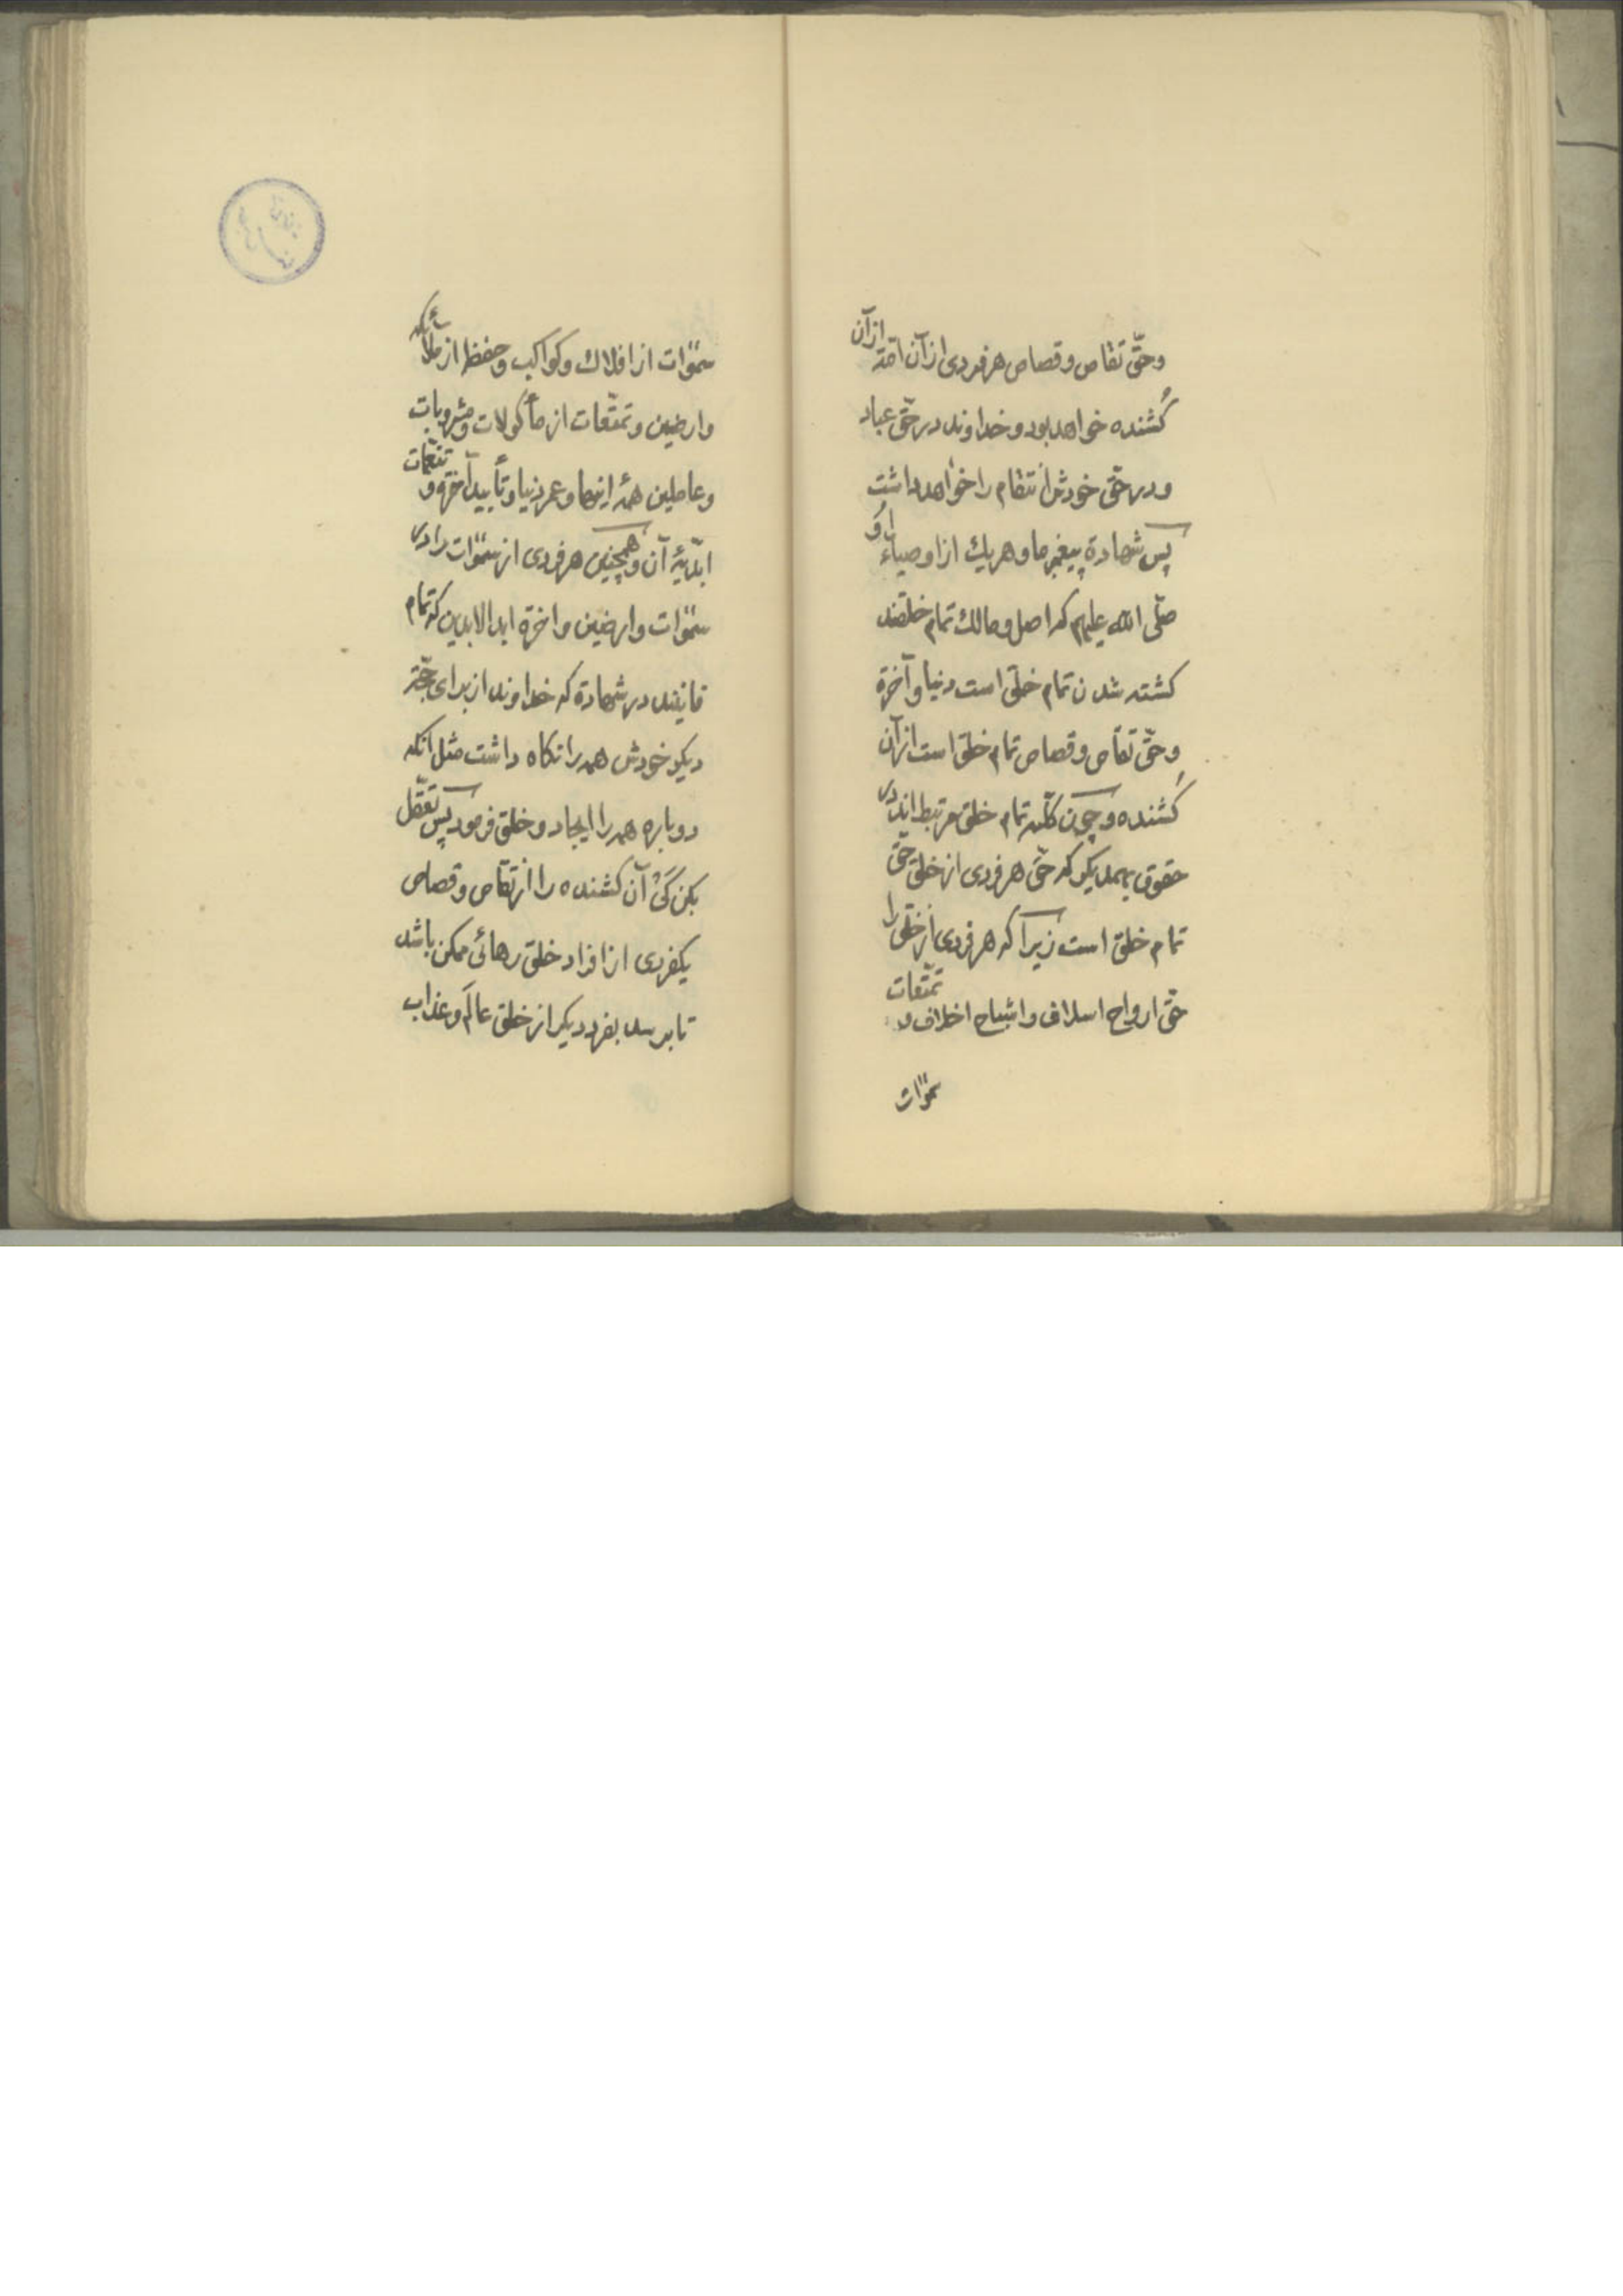 وحقّ تقاص وقصاص هر فردی از آن امّة از آن
کُشنده خواهد بود و خداوند در حقّ عباد
و در حقّ خودش انتقام را خواهد داشت
پس شهادة پیغمبر ما و هر یك از اوصیاء او
صلّی الله علیهم که اصل و مالك تمام خلقند
کشته شدن تمام خلق است دنیا وآخرة
وحقّ تقاص وقصاص تمام خلق است از آن
کُشنده و چون کلّیه تمام خلق مرتبط اند در
حقوق بهمدیکر که حقّ هر فردی از خلق حقّ
تمام خلق است زیرا که هر فردی از خلق را
حقّ ارواح اسلاف واشباح اخلاف و تمتّعات
سموٰات
سموٰات از افلاك وکواکب وحفظ از ملائکه
وارضین وتمتّعات از مأکولات ومشروبات
وعاملین همهٔ اینها وعمر دنیا وتأیید آخرة و تنعّمات
ابدّیهٔ آن وهمچنین هر فردی از سموٰات را در
سموٰات وارضین واخرة ابد الابدین که تمام
فانیند در شهادة که خداوند از برای حجّة
دیکر خودش همه را نکاه داشت مثل آنکه
دوباره همه را ایجاد و خلق فرمود پس تعقّل
بکن کَیْ آن کشنده را از تقاص وقصاص
یکفردی از افراد خلق رهائی ممکن باشد
تا برسد بفرد دیکر از خلق عالم وعذاب